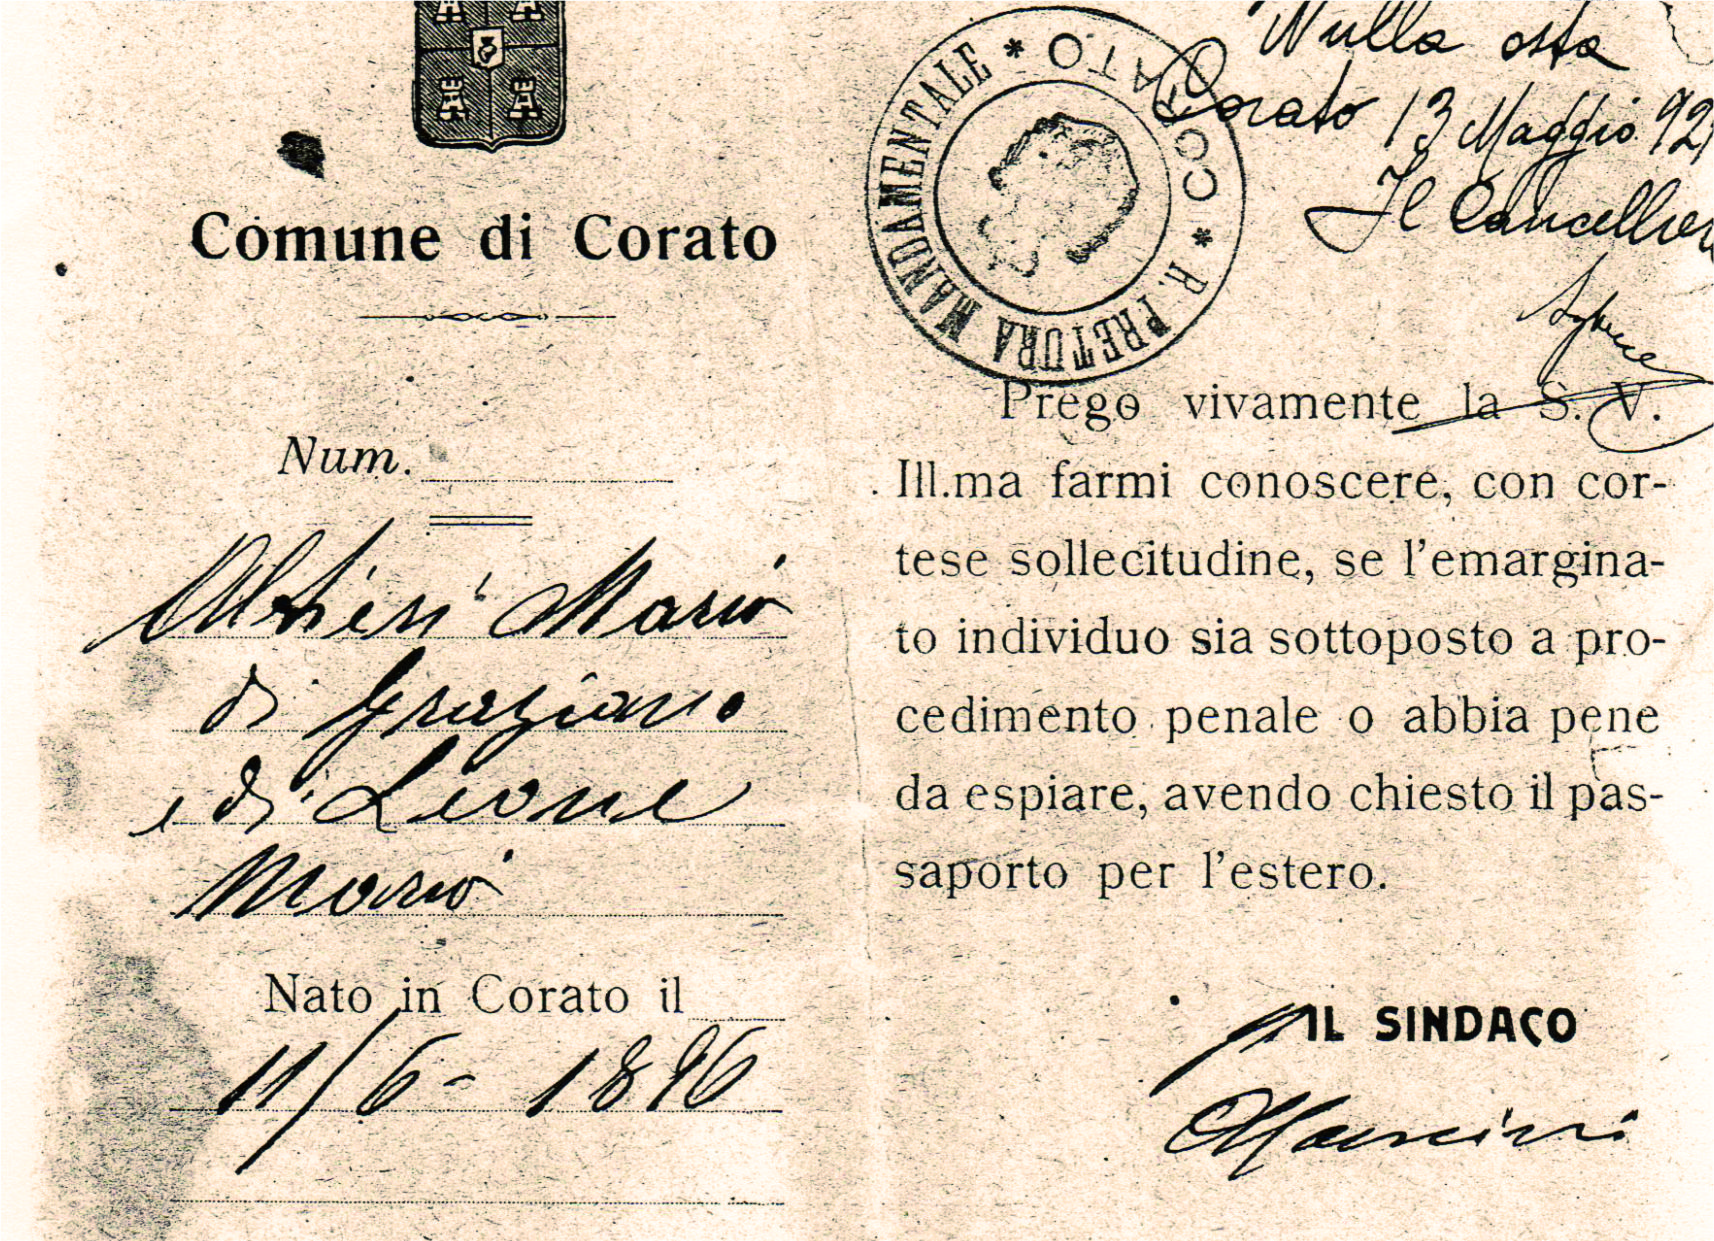 Comune di Corato
Num.
Altieri Mario
di Graziano
e di Leone
Maria
Nato in Corato il
11/6 - 1896
R. PRETURA MANDAMENTALE * CORATO *
Nulla osta
Corato 13 Maggio 92
Il Cancellier
Prego vivamente la S. V.
Ill.ma farmi conoscere, con cor-
tese sollecitudine, se l'emargina-
to individuo sia sottoposto a pro-
cedimento penale o abbia pene
da espiare, avendo chiesto il pas-
saporto per l'estero.
IL SINDACO